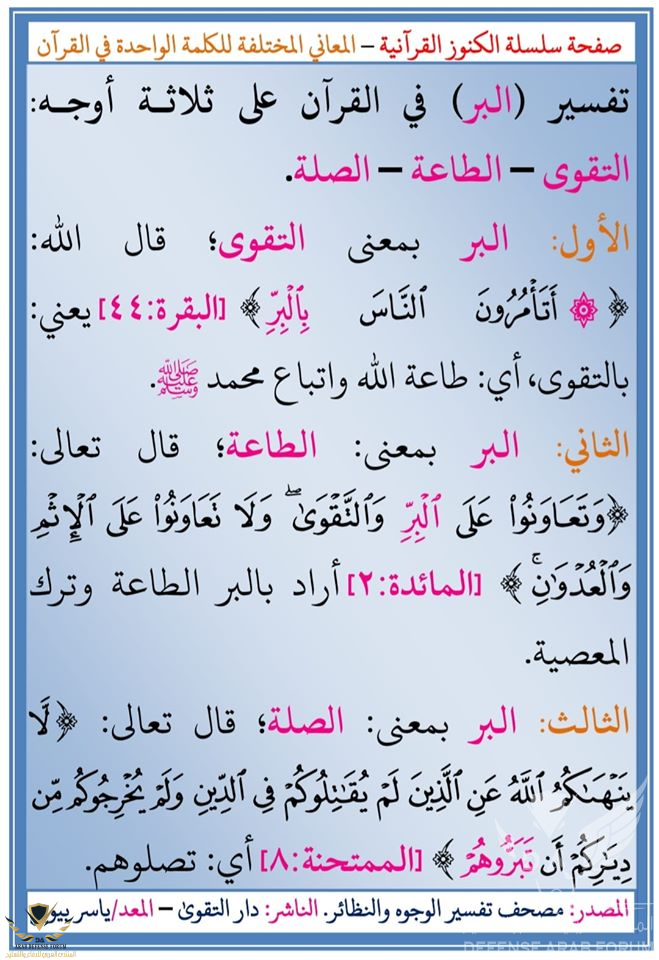 صفحة سلسلة الكنوز القرآنية – المعاني المختلفة للكلمة الواحدة في القرآن
تفسير (البر) في القرآن على ثلاثة أوجه:
التقوى – الطاعة – الصلة.
الأول: البر بمعنى التقوى؛ قال الله:
﴿۞ أَتَأْمُرُونَ ٱلنَّاسَ بِٱلْبِرِّ﴾ [البقرة:٤٤] يعني:
بالتقوى، أي: طاعة الله واتباع محمد ﷺ.
الثاني: البر بمعنى: الطاعة؛ قال تعالى:
﴿وَتَعَاوَنُوا۟ عَلَى ٱلْبِرِّ وَٱلتَّقْوَىٰ ۖ وَلَا تَعَاوَنُوا۟ عَلَى ٱلْإِثْمِ
وَٱلْعُدْوَٰنِ ۚ﴾ [المائدة:٢] أراد بالبر الطاعة وترك
المعصية.
الثالث: البر بمعنى: الصلة؛ قال تعالى: ﴿لَّا
يَنْهَىٰكُمُ ٱللَّهُ عَنِ ٱلَّذِينَ لَمْ يُقَٰتِلُوكُمْ فِى ٱلدِّينِ وَلَمْ يُخْرِجُوكُم مِّن
دِيَٰرِكُمْ أَن تَبَرُّوهُمْ﴾ [الممتحنة:٨] أي: تصلوهم.
المصدر: مصحف تفسير الوجوه والنظائر. الناشر: دار التقوىٰ – المعد/ياسر بيومي
ARAB DEFENSE FORUM
المنتدى العربي للدفاع والتسليح
DEFENSE ARAB FORUM